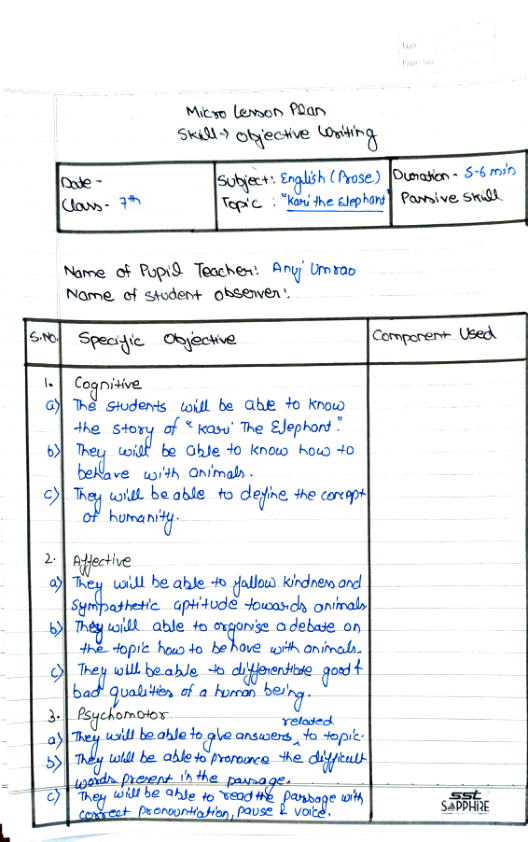 Date
Page No.
Micro Lesson Plan
Skill → Objective Writing
Date -
Class - 7th
Subject: English (Prose)
Topic : "Kari the Elephant"
Duration - 5-6 min
Passive Skill
Name of Pupil Teacher: Anuj Umrao
Name of student observer:
S.NO. Specific Objective Component Used
1. Cognitive
a) The students will be able to know
the story of "Kari The Elephant."
b) They will be able to know how to
behave with animals.
c) They will be able to define the concept
of humanity.
2. Affective
a) They will be able to fallow kindness and
sympathetic aptitude towards animals
b) They will able to organise a debate on
the topic how to behave with animals.
c) They will be able to differentiate good &
bad qualities of a human being.
3. Psychomotor
a) They will be able to give answers related to topic.
b) They will be able to pronounce the difficult
words present in the passage.
c) They will be able to read the passage with
correct pronountiation, pause & voice.
sst
SAPPHIRE